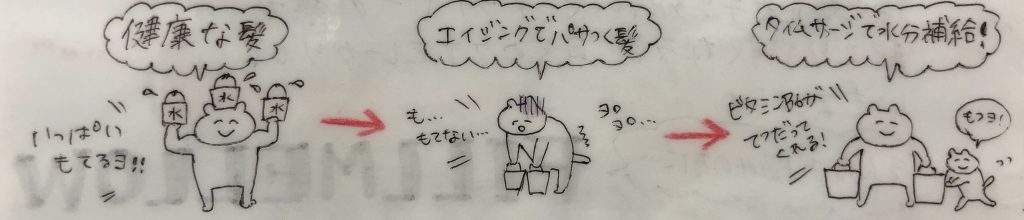 健康な髪
水
水
水
いっぱい
もてるヨ!!
エイジングでパサつく髪
も…
もてない…
ヨロ
ヨロ…
タイムサージで水分補給!
ビタミンB6が
てつだって
くれる!
もつヨ!